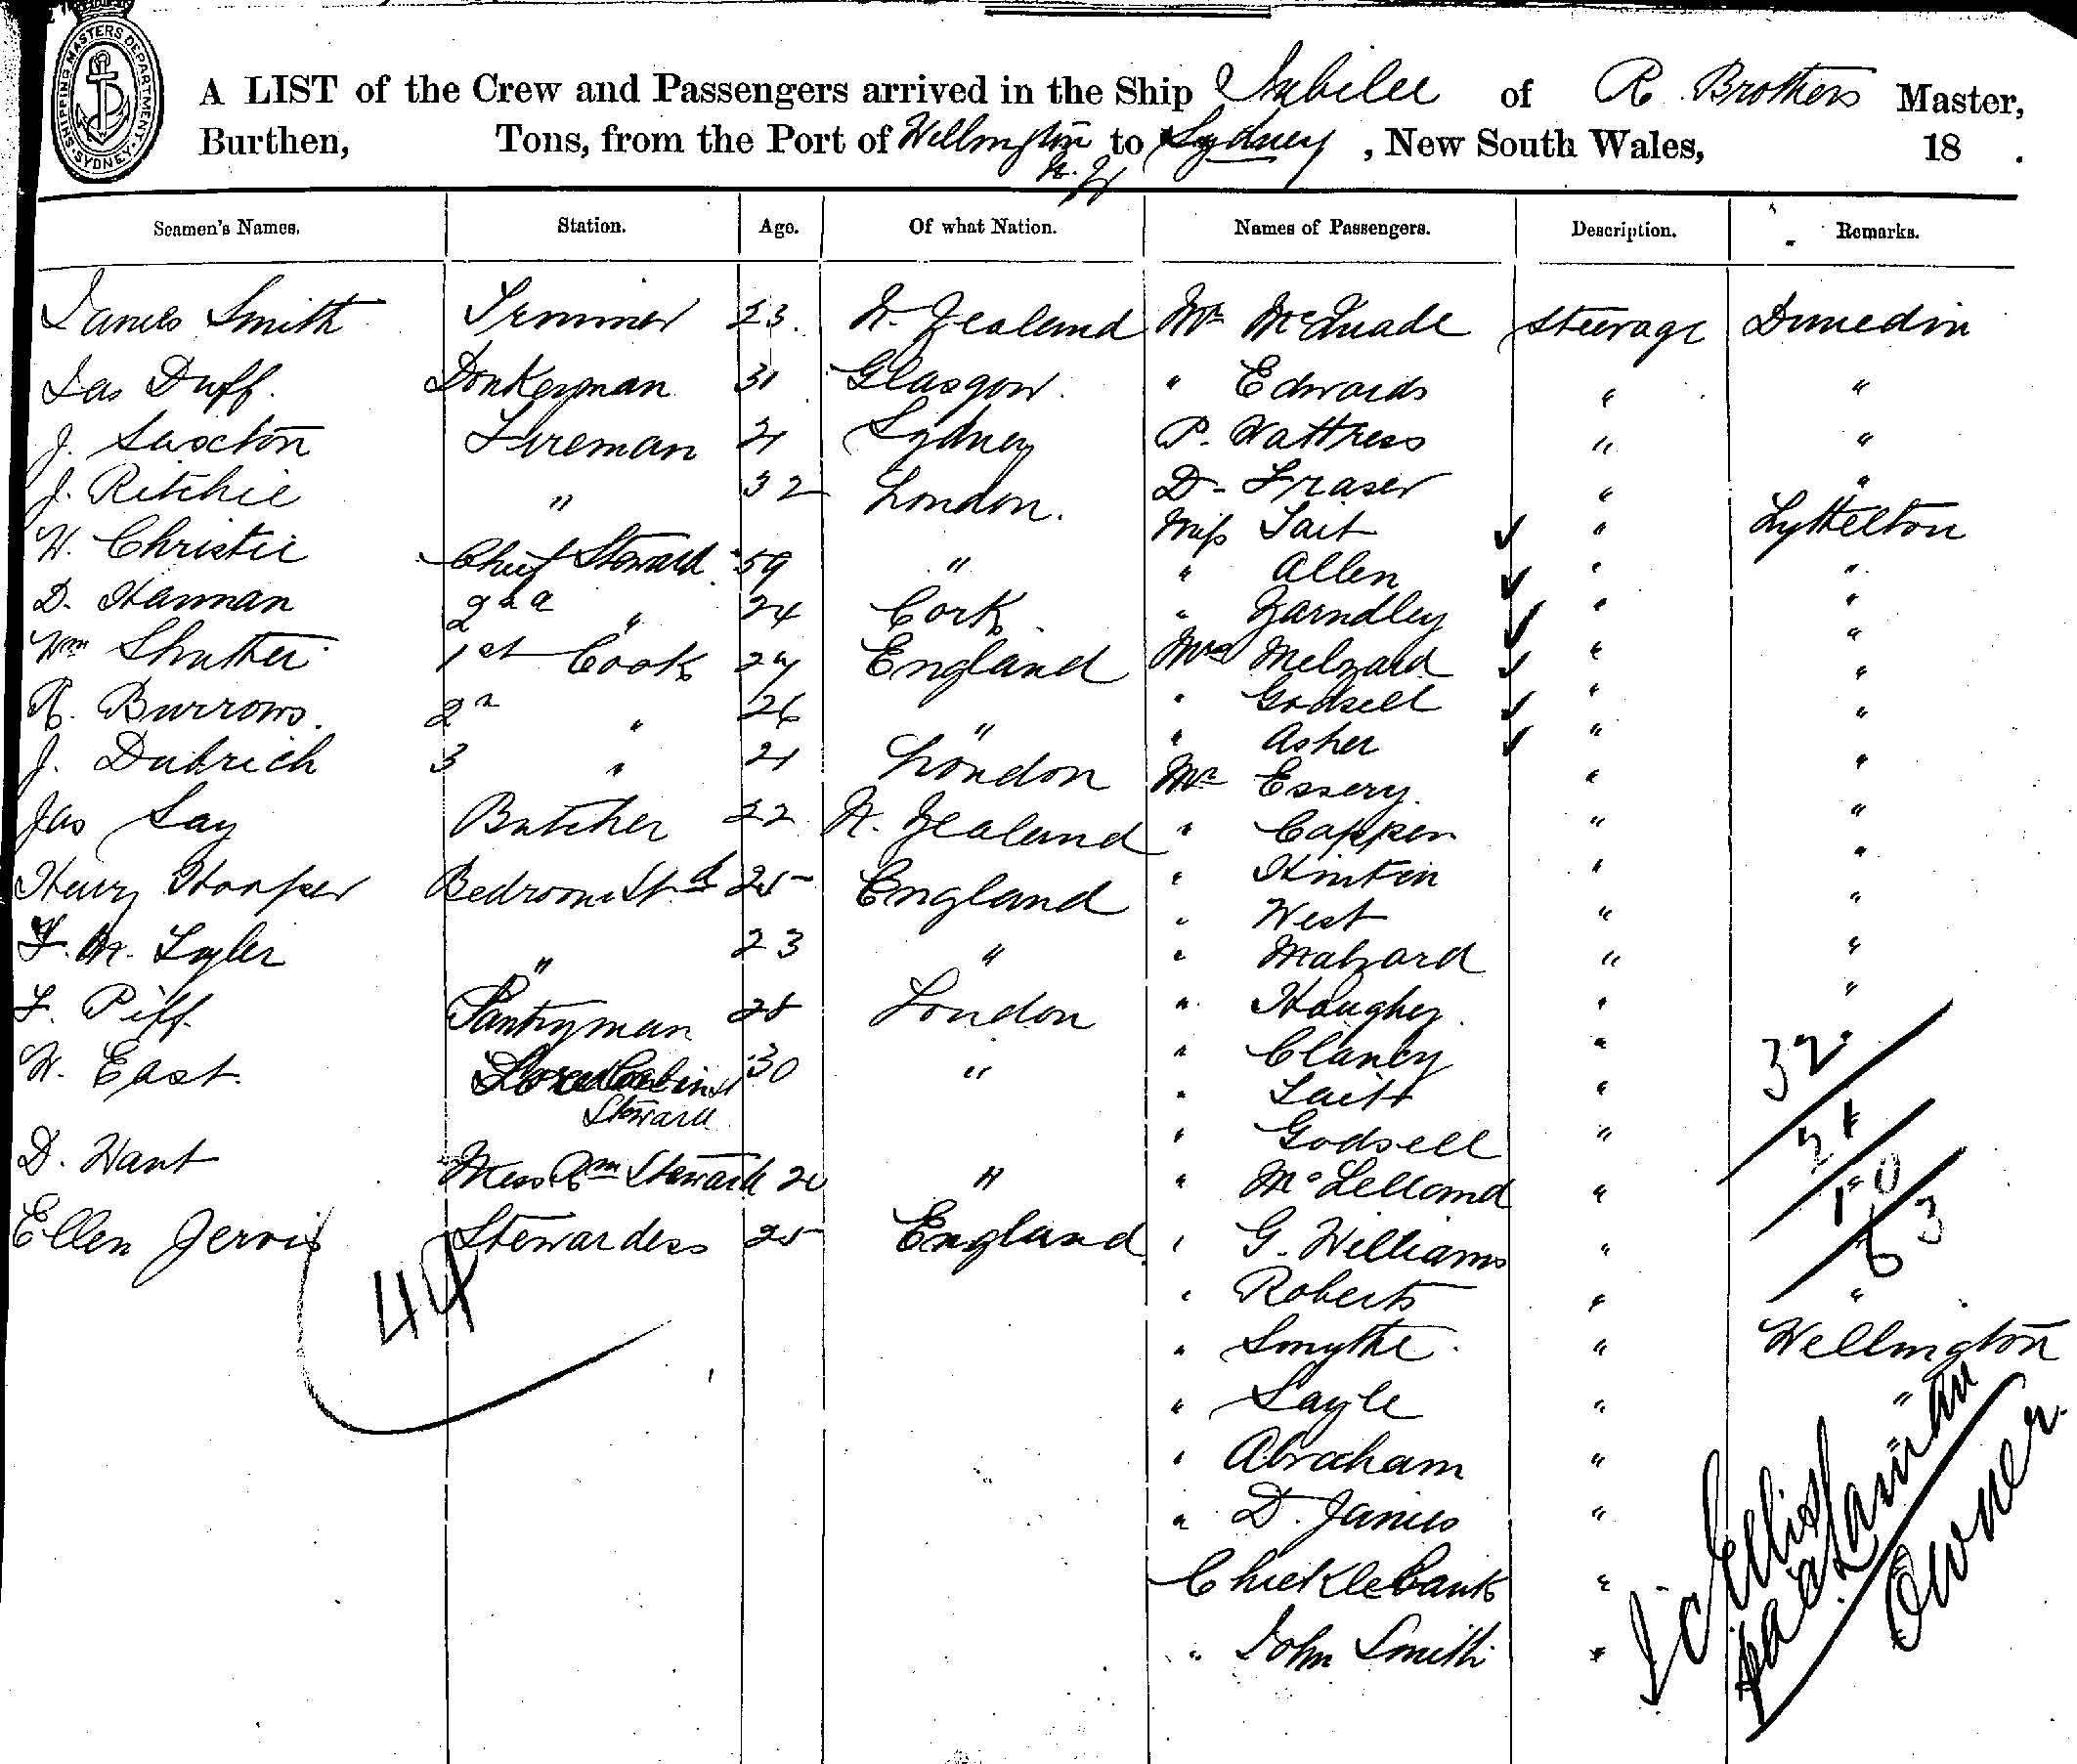 SHIPPING MASTERS DEPARTMENT · SYDNEY ·
A LIST of the Crew and Passengers arrived in the Ship Jubilee of R. Brothers Master,
Burthen, Tons, from the Port of Wellington N.Z. to Sydney, New South Wales, 18 .
Seamen's Names. Station. Age. Of what Nation. Names of Passengers. Description. Remarks.
James Smith Trimmer 23. N. Zealand Mr McQuade Steerage Dunedin
Jas Duff. Donkeyman 31 Glasgow. " Edwards " "
J. Saxton Fireman 21 Sydney P. Wattress " "
J. Ritchie " 32 London. D. Fraser " "
W. Christie Chief Steward 59 " Miss Tait ✓ " Lyttelton
D. Hannan 2nd " 24 Cork " Allen ✓ " "
Wm Shutter 1st Cook 27 England " Yarndley ✓ " "
R. Burrows. 2n " 26 " Mrs Melzard ✓ " "
J. Dubrich 3 " 21 London " Godsell ✓ " "
Jas Say Butcher 22 N. Zealand " Asher ✓ " "
Henry Hooper Bedroom Std 25 England Mr Essery. " "
F. M. Lyler " 23 " " Cappen " "
F. Piff. Pantryman 28 London " Hinkin " "
W. East. Cabin Steward 30 " " West " "
D. Want Mess Rm Steward 20 " " Malzard " "
Ellen Jervis Stewardess 25 England " Haughey. " "
" Clancy " "
" Tait "
" Godsell "
" McLelland "
" G. Williams "
" Roberts " "
" Smythe. " Wellington
" Sayle " "
" Abraham " "
" D. James "
Chicklebank "
" John Smith "
44
32
21
10
63
Owner.